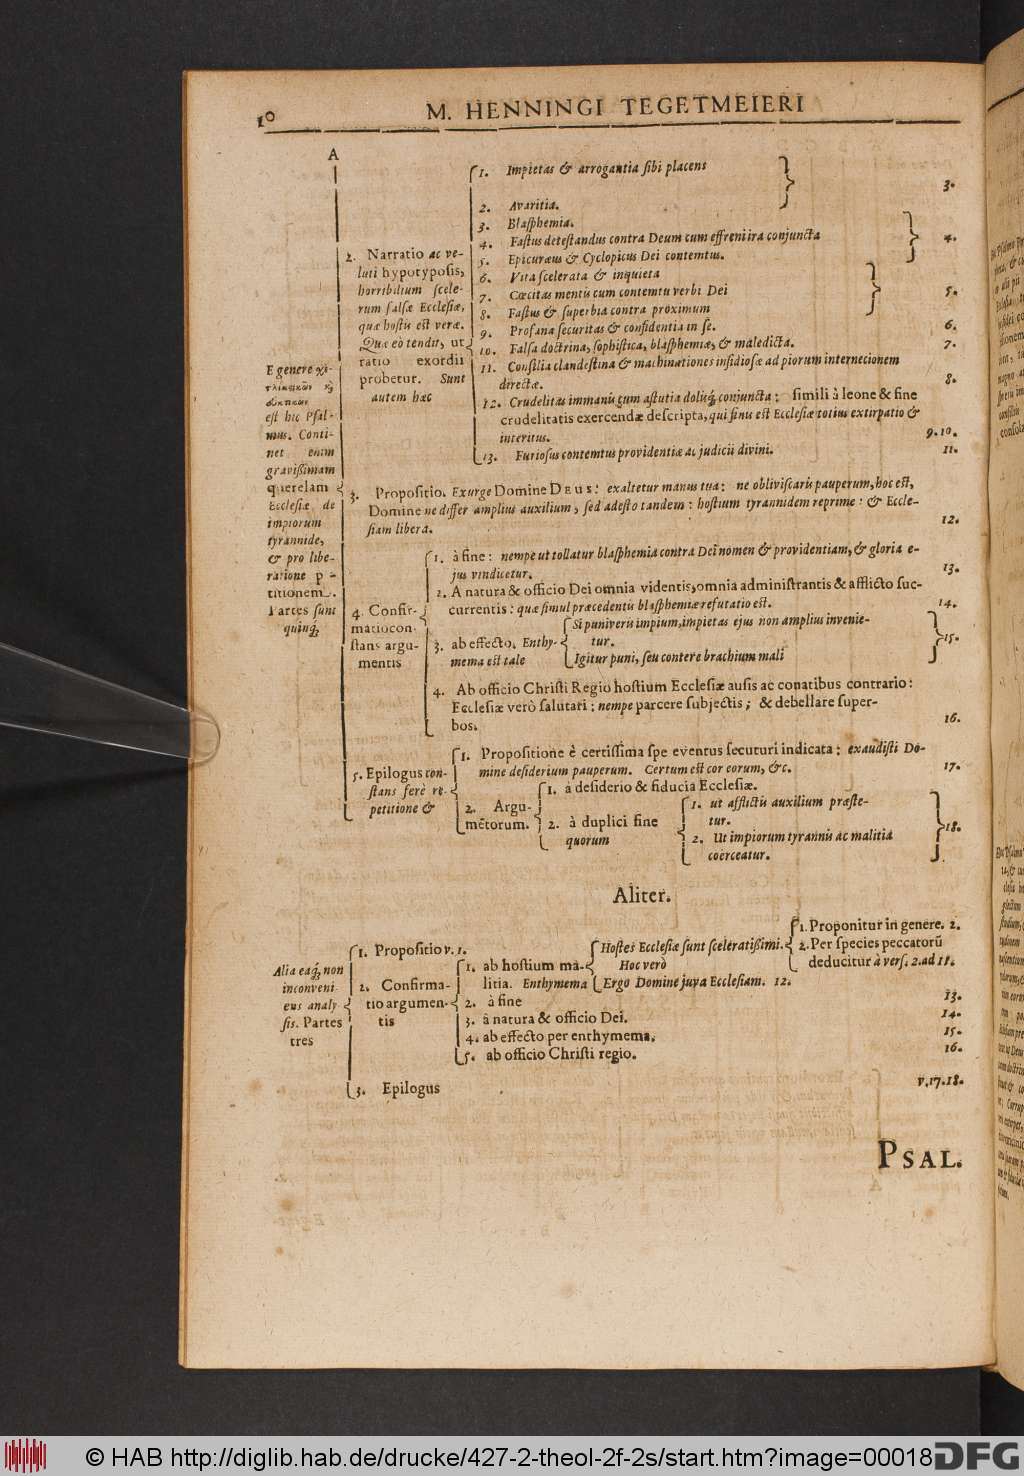 10 M. HENNINGI TEGETMEIERI
A
E genere
est hic Psal-
mus. Conti-
net enim
gravißimam
querelam
Ecclesiæ de
impiorum
tyrannide,
& pro libe-
ratione p -
titionem.
Partes sunt
quinq́;
2. Narratio ac ve-
luti hypotyposis,
horribilium scele-
rum falsæ Ecclesiæ,
quæ hostis est veræ.
Quæ eò tendit, ut
ratio exordii
probetur. Sunt
autem hæc
1. Impietas & arrogantia sibi placens
2. Avaritia. 3.
3. Blasphemia.
4. Fastus detestandus contra Deum cum effreni ira conjuncta
5. Epicuræus & Cyclopicus Dei contemtus. 4.
6. Vita scelerata & inquieta
7. Cæcitas mentis cum contemtu verbi Dei
8. Fastus & superbia contra proximum 5.
9. Profana securitas & confidentia in se. 6.
10. Falsa doctrina, sophistica, blasphemiæ, & maledicta. 7.
11. Consilia clandestina & machinationes insidiosæ ad piorum internecionem
directæ. 8.
12. Crudelitas immanis cum astutia dolisq́; conjuncta: simili à leone & fine
crudelitatis exercendæ descripta, qui finis est Ecclesiæ totius extirpatio &
interitus. 9.10.
13. Furiosus contemtus providentiæ ac judicii divini. 11.
3. Propositio. Exurge Domine DEUS: exaltetur manus tua: ne obliviscaris pauperum, hoc est,
Domine ne differ amplius auxilium, sed adesto tandem: hostium tyrannidem reprime: & Eccle-
siam libera. 12.
4. Confir-
matio con-
stans argu-
mentis
1. à fine: nempe ut tollatur blasphemia contra Dei nomen & providentiam, & gloria e-
jus vindicetur. 13.
2. A natura & officio Dei omnia videntis, omnia administrantis & afflicto suc-
currentis: quæ simul præcedentis blasphemiæ refutatio est. 14.
3. ab effecto. Enthy-
mema est tale
Si puniveris impium, impietas ejus non amplius invenie-
tur.
Igitur puni, seu contere brachium mali 15.
4. Ab officio Christi Regio hostium Ecclesiæ ausis ac conatibus contrario:
Ecclesiæ verò salutari: nempe parcere subjectis; & debellare super-
bos. 16.
5. Epilogus con-
stans ferè re-
petitione &
1. Propositione è certissima spe eventus secuturi indicata: exaudisti Do-
mine desiderium pauperum. Certum est cor eorum, &c. 17.
2. Argu-
mētorum.
1. à desiderio & fiducia Ecclesiæ.
2. à duplici fine
quorum
1. ut afflictis auxilium præste-
tur.
2. Ut impiorum tyrannis ac malitia
coerceatur. 18.
Aliter.
Alia eaq́, non
inconveni-
ens analy-
sis. Partes
tres
1. Propositio v. 1.
2. Confirma-
tio argumen-
tis
1. ab hostium ma-
litia. Enthymema
Hostes Ecclesiæ sunt sceleratißimi.
Hoc verò
Ergo Domine juva Ecclesiam. 12.
1. Proponitur in genere. 2.
2. Per species peccatorū
deducitur à vers. 2. ad 11.
2. à fine 13.
3. à natura & officio Dei. 14.
4. ab effecto per enthymema. 15.
5. ab officio Christi regio. 16.
3. Epilogus v. 17.18.
PSAL.
© HAB http://diglib.hab.de/drucke/427-2-theol-2f-2s/start.htm?image=00018
DFG